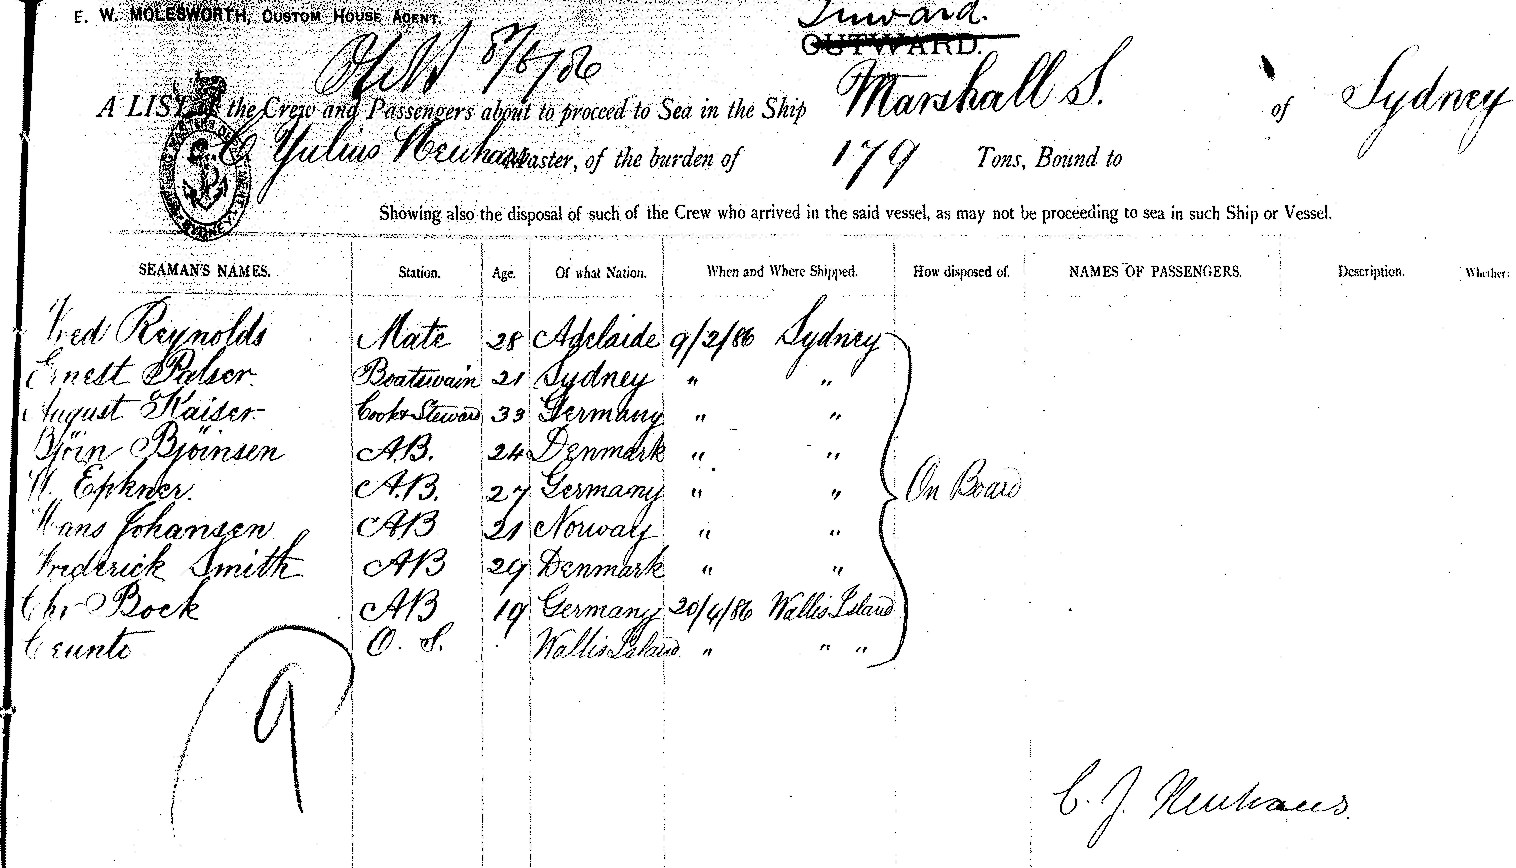 E. W. MOLESWORTH, CUSTOM HOUSE AGENT.
Inward.
OUTWARD.
A LIST of the Crew and Passengers about to proceed to Sea in the Ship Marshall S. of Sydney
C Yulius Neuhaus Master, of the burden of 179 Tons, Bound to
Showing also the disposal of such of the Crew who arrived in the said vessel, as may not be proceeding to sea in such Ship or Vessel.
SEAMAN'S NAMES. Station. Age. Of what Nation. When and Where Shipped. How disposed of. NAMES OF PASSENGERS. Description. Whether
Fred Reynolds Mate 28 Adelaide 9/2/86 Sydney
Ernest Palser Boatswain 21 Sydney " "
August Kaiser Cook & Steward 33 Germany " "
Björn Bjöinsen A.B. 24 Denmark " "
W. Epkner. A.B. 27 Germany " "
On Board
Hans Johansen AB 21 Norway " "
Frederick Smith AB 29 Denmark " "
Chr Bock AB 19 Germany 20/4/86 Wallis Island
O. S. Wallis Island " " "
9
C. J. Neuhaus.